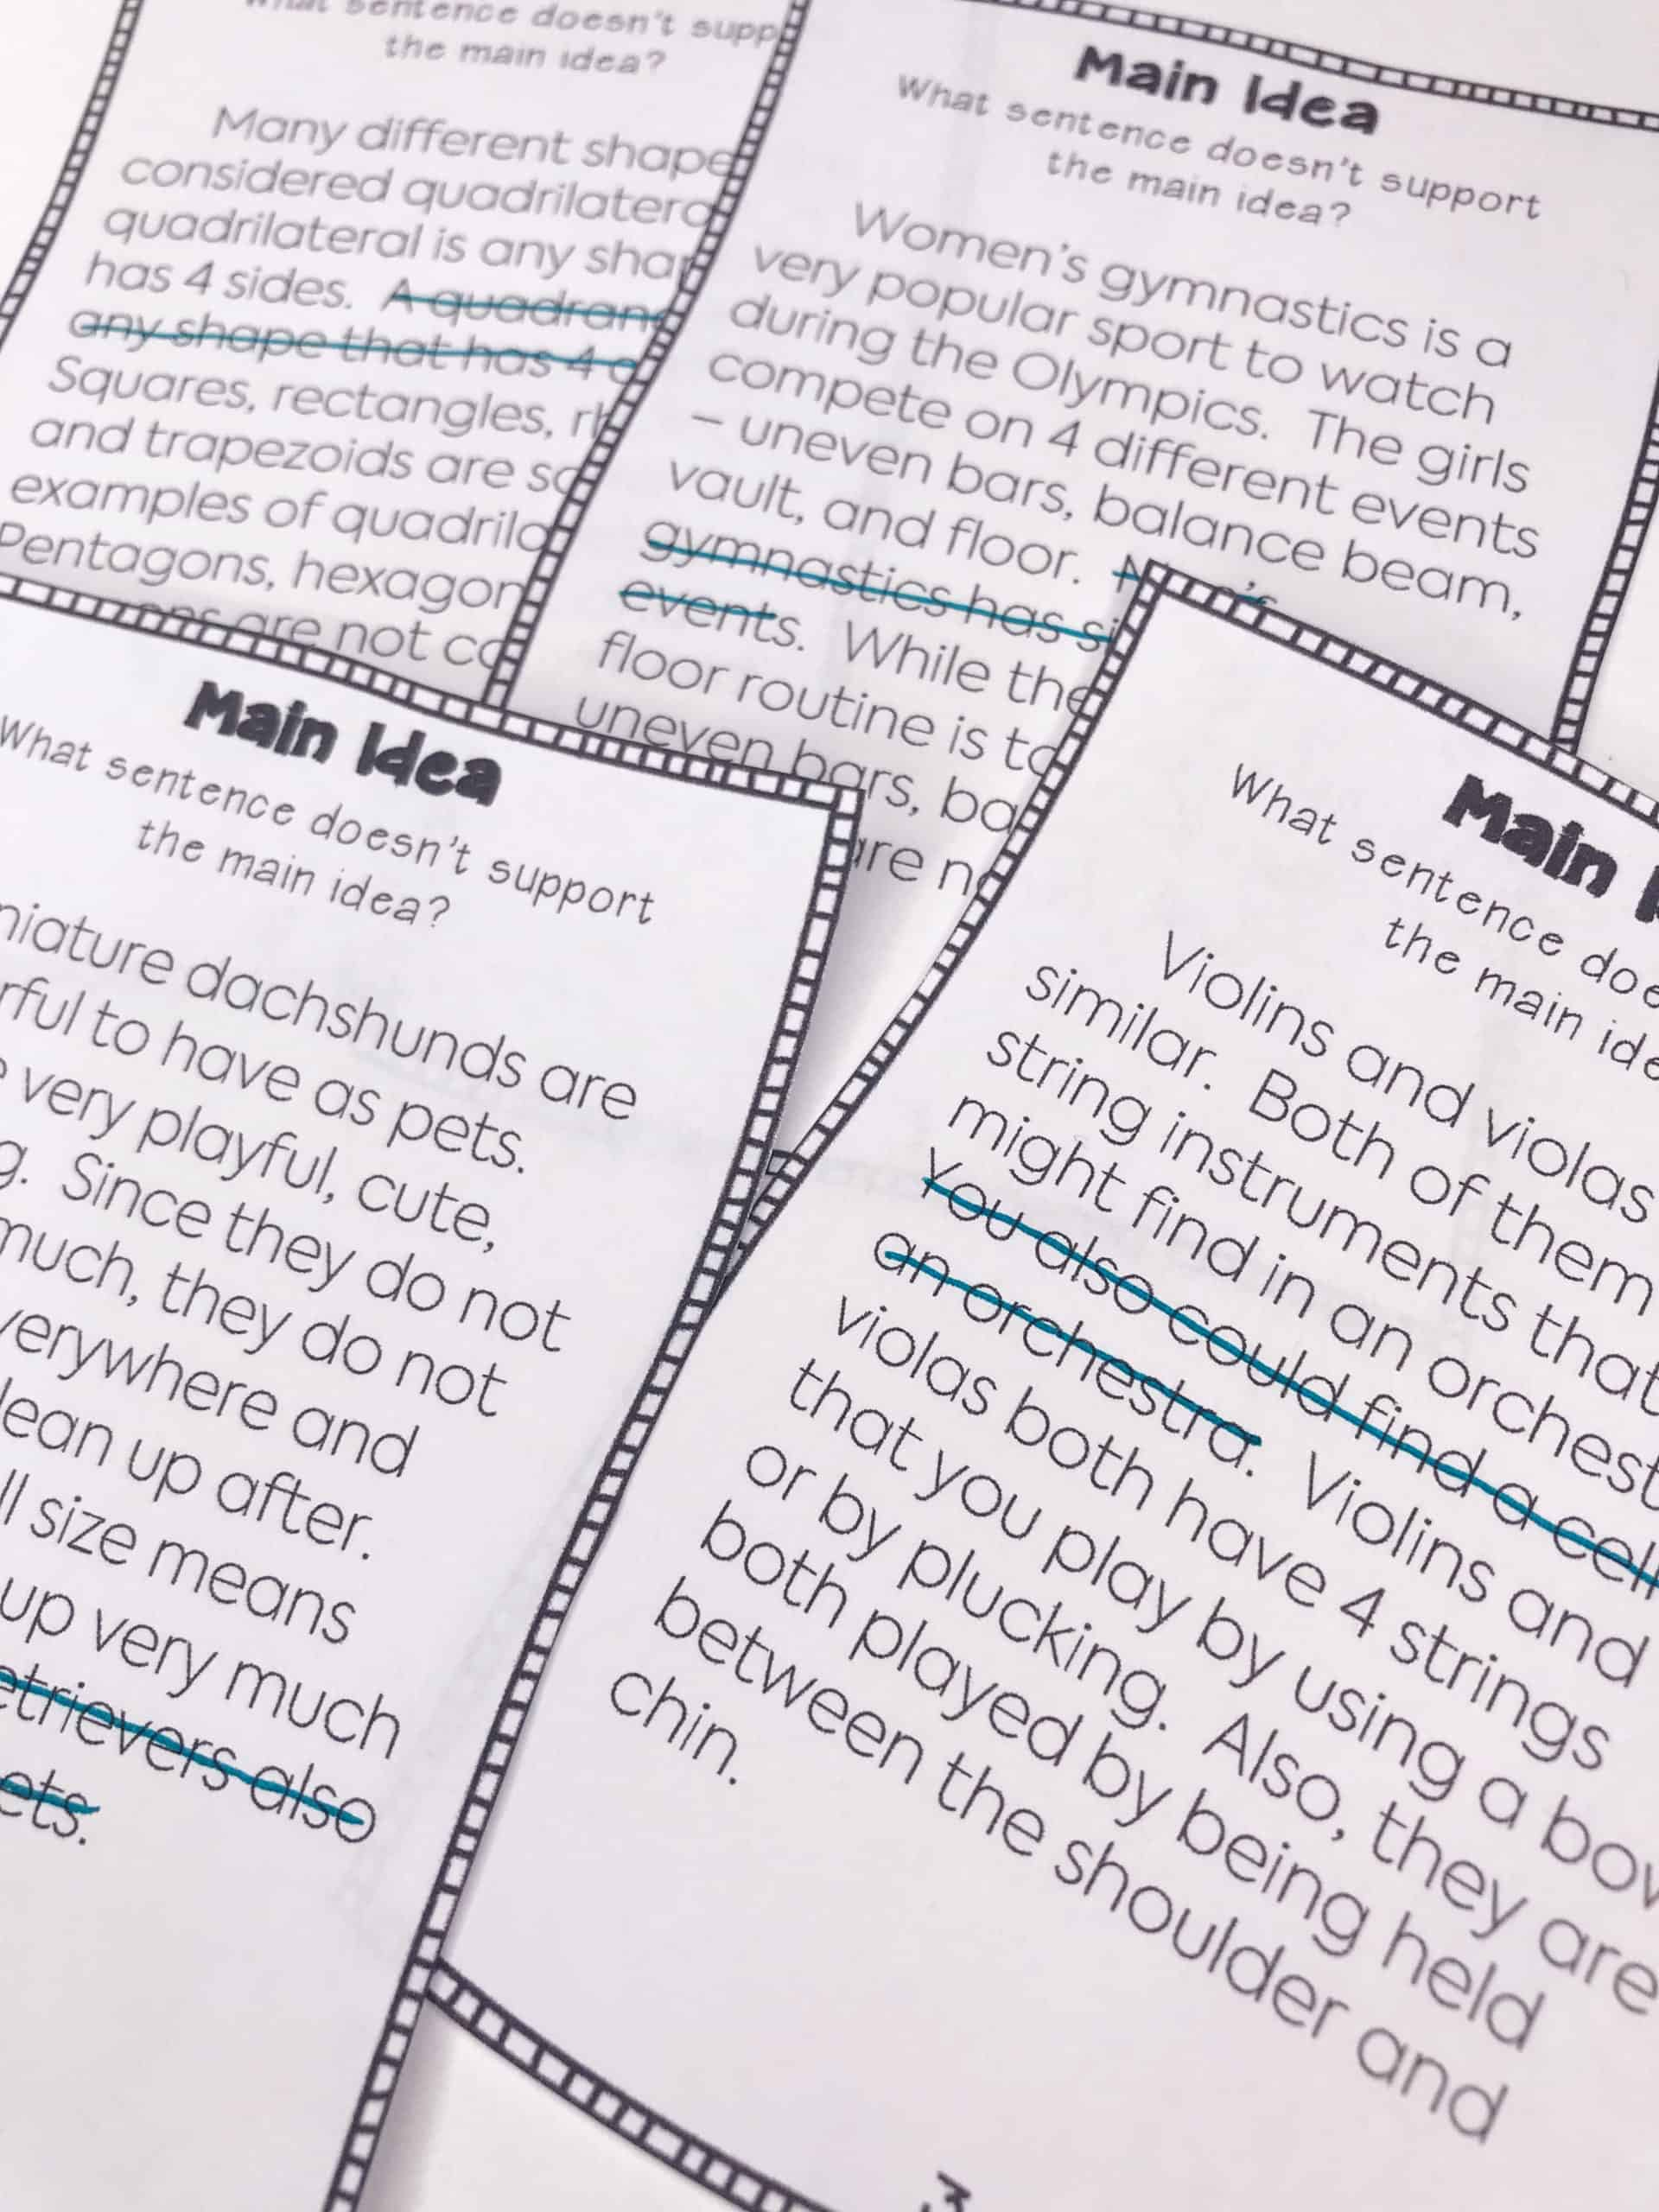 What sentence doesn't
the main idea?
Many different
considered
quadrilateral is any
has 4 sides. A
any shape that has 4
Squares, rectangles,
and trapezoids are
examples of
Pentagons,
are not
Main Idea
What sentence doesn't support
the main idea?
Women's gymnastics is a
very popular sport to watch
during the Olympics. The girls
compete on 4 different events
– uneven bars, balance beam,
vault, and floor.
gymnastics has
events. While the
floor routine is
uneven bars,
are
Main Idea
What sentence doesn't support
the main idea?
dachshunds are
to have as pets.
very playful, cute,
Since they do not
much, they do not
and
up after.
size means
up very much
also
Main
What sentence
the main
Violins and violas
similar. Both of them
string instruments that
might find in an
You also could find a
an orchestra. Violins and
violas both have 4 strings
that you play by using a
or by plucking. Also, they are
both played by being held
between the shoulder and
chin.
3